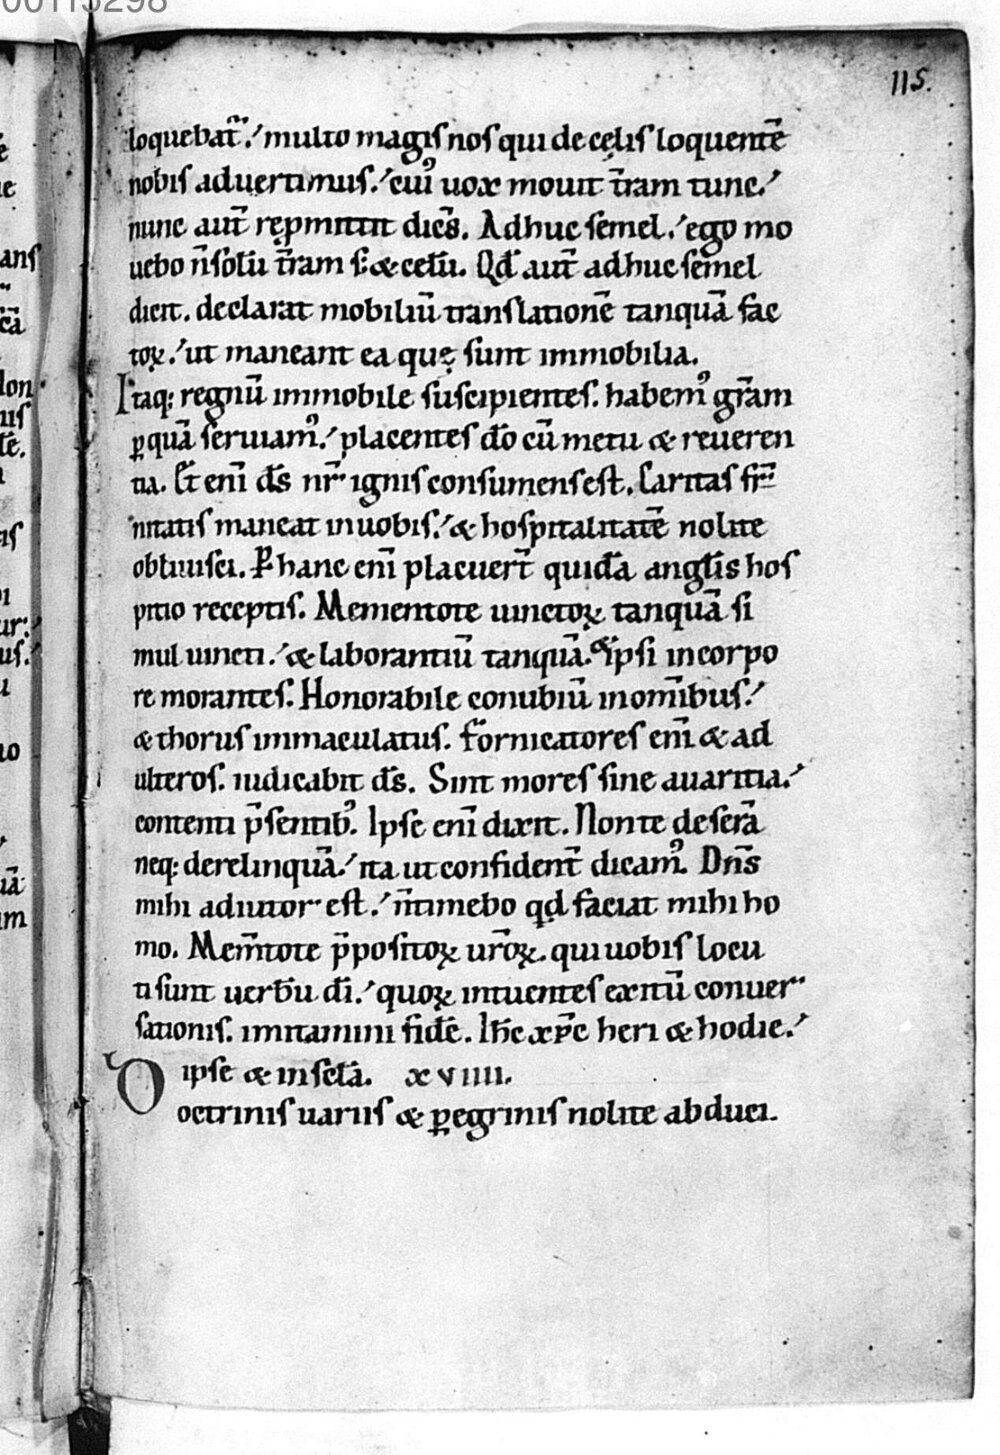 00115298
115.
loquebat᷑. multo magis nos qui de cęlis loquentē
nobis aduertimus. cuiꝰ uox mouit t̄ram tunc.
nunc aut̄ rep̄mittit dicēs. Adhuc semel. ego mo
uebo n̄ solū t̄ram s; & celū. Qd̄ aut̄ adhuc semel
dicit. declarat mobiliū translationē tanquā fac
toꝝ. ut maneant ea quę sunt immobilia.
Itaq; regnū immobile suscipientes. habemꝰ gr̄am
ꝑ quā seruiamꝰ. placentes dō cū metu & reueren
tia. Et eni d̄s nr̄ ignis consumens est. Caritas fr̄
nitatis maneat in uobis. & hospitalitatē nolite
obliuisci. P hanc eni placuer̄t quidā angl̄is hos
pitio receptis. Mementote uinctoꝝ tanquā si
mul uincti. & laborantiū tanquā. & ipsi in corpo
re morantes. Honorabile conubiū in om̄ibus.
& thorus immaculatus. fornicatores eni & ad
ulteros. iudicabit d̄s. Sint mores sine auaritia.
contenti p̄sentibꝰ. Ipse eni dixit. Non te deserā
neq; derelinquā. ita ut confident̄ dicamꝰ. Dn̄s
mihi adiutor est. n̄ timebo qd faciat mihi ho
mo. Mem̄tote p̄positoꝝ ur̄oꝝ. qui uobis locu
ti sunt uerbū dī. quoꝝ intuentes exitū conuer
sationis. imitamini fidē. Ih̄c xp̄c heri & hodie.
ipse & in sclā. xviiii.
Doctrinis uariis & ꝑegrinis nolite abduci.